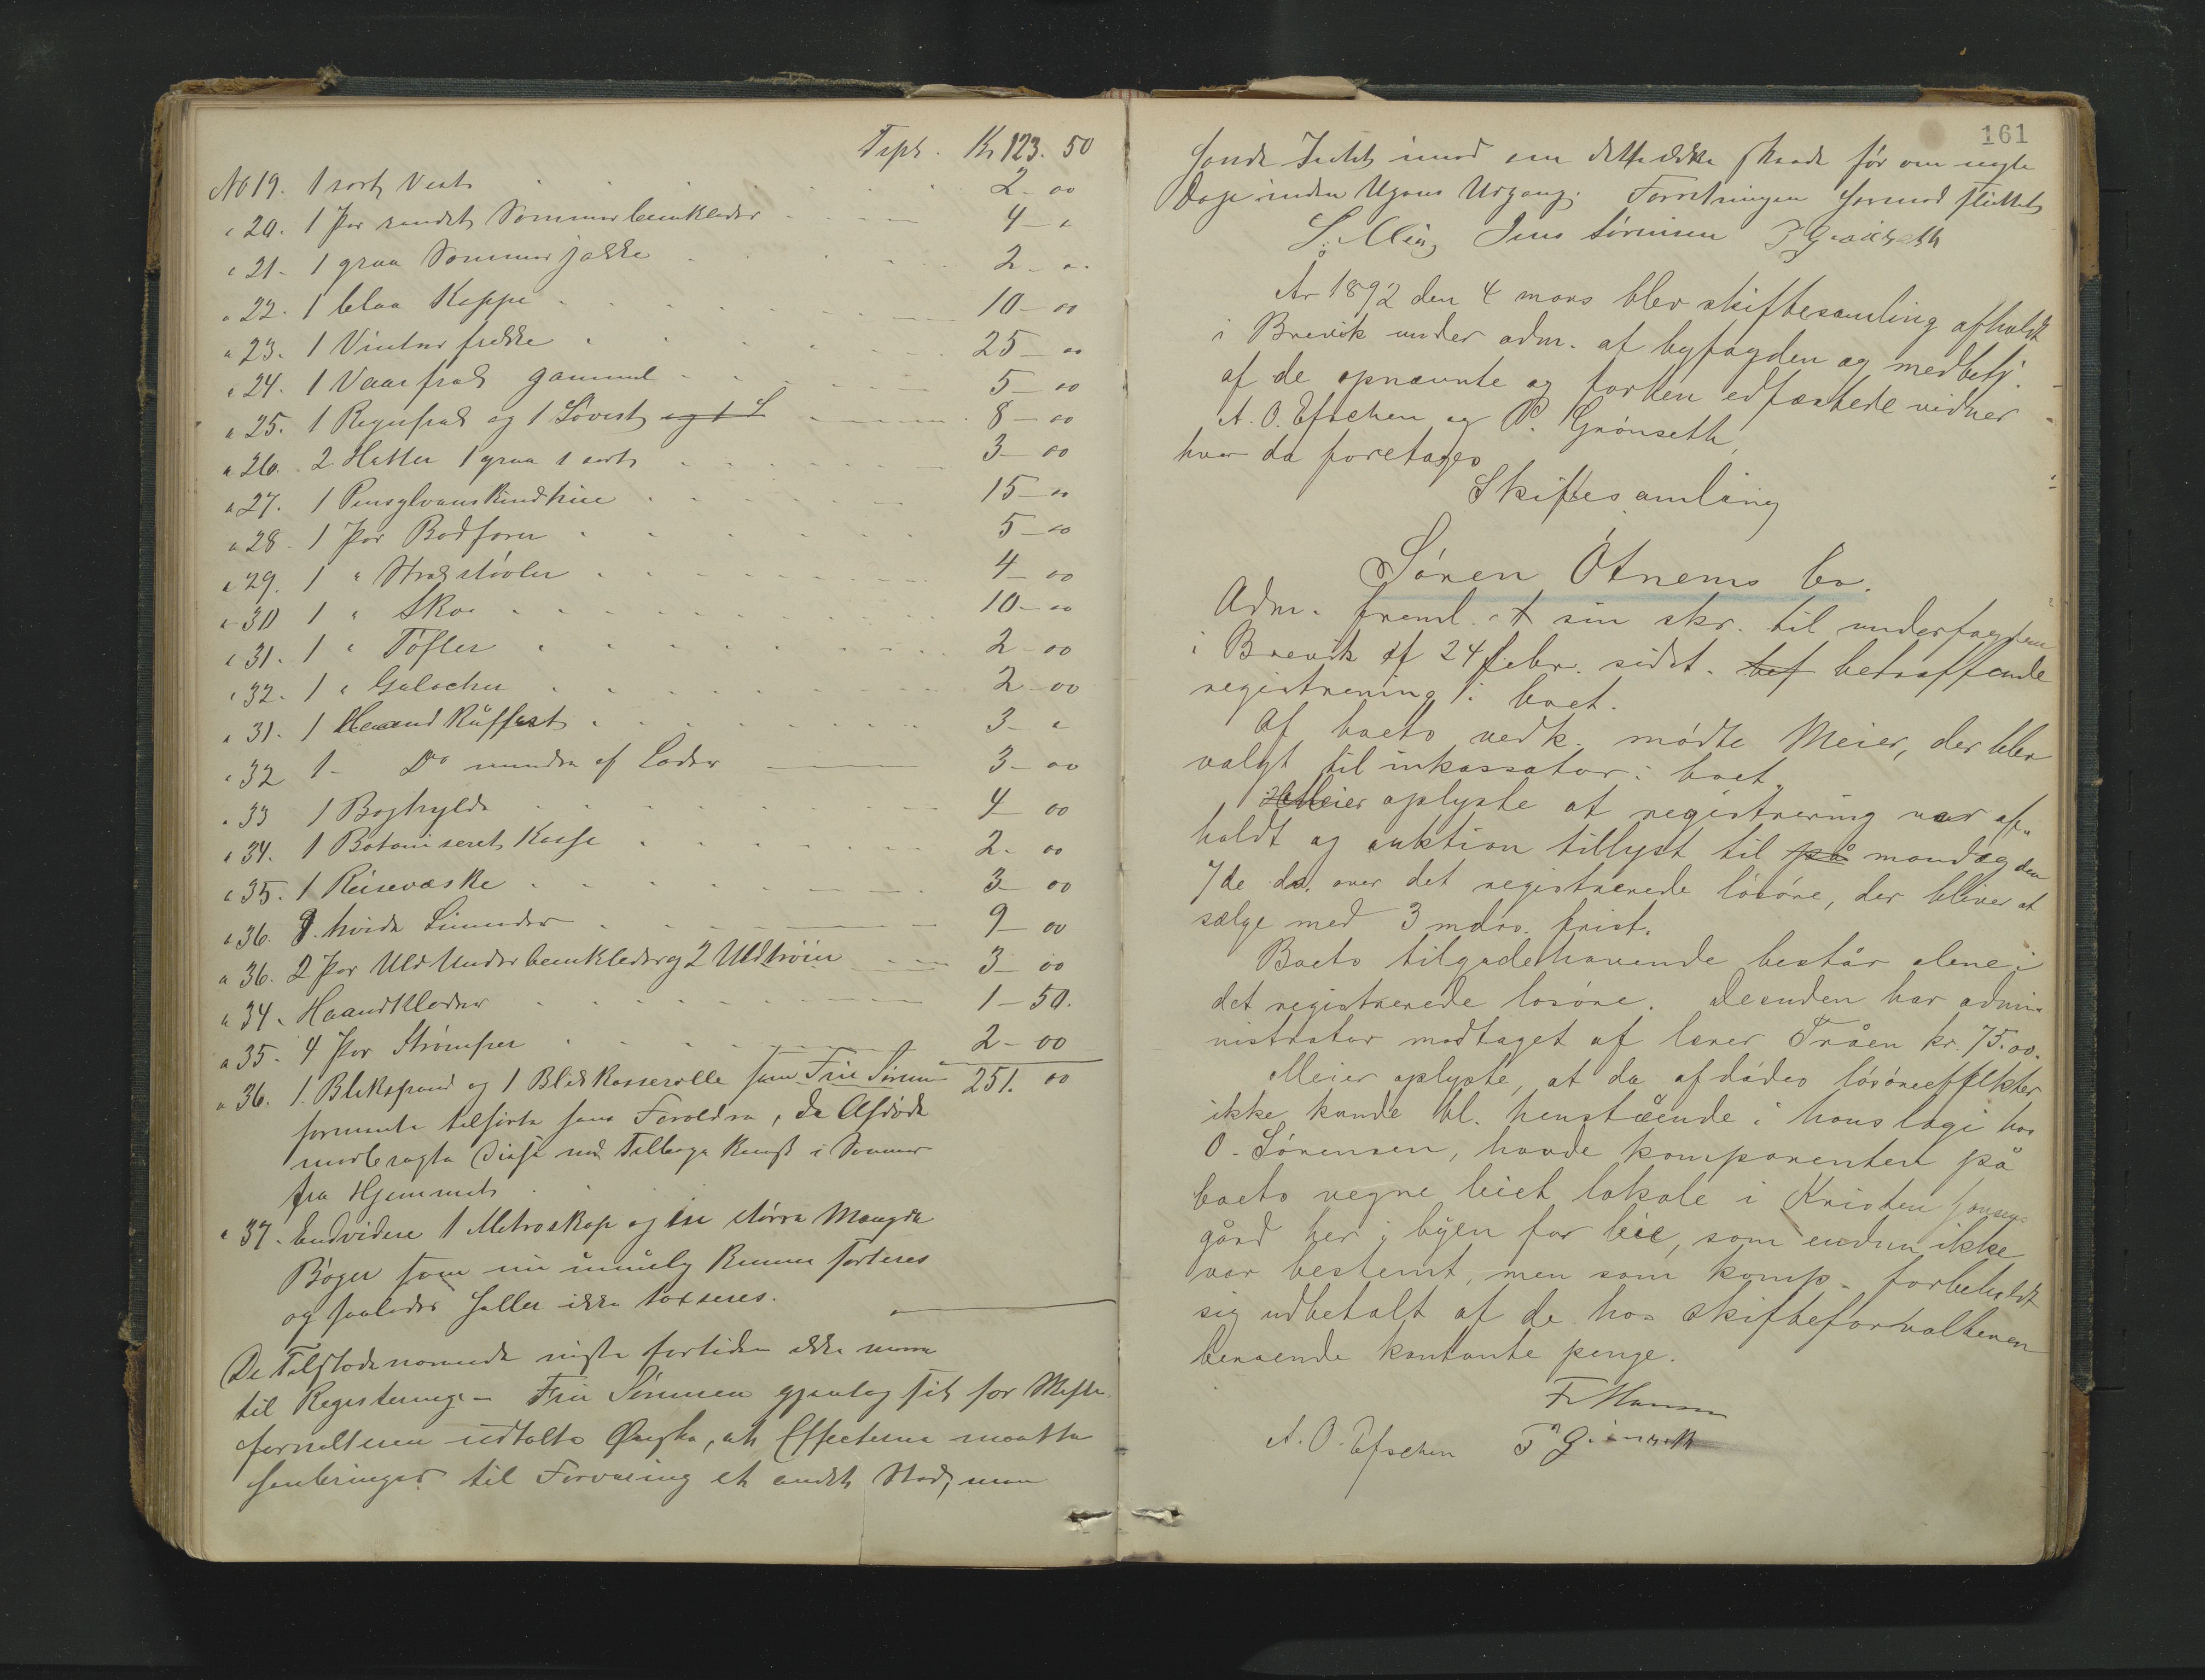 Tspt. Kr 123. 50
No 19. 1 sort Vest 2-00
" 20. 1 Par randet Sommerbeenklæder 4-"
" 21. 1 graa Sommer jakke 2-"
" 22. 1 blaa Kappe 10-00
" 23. 1 Vinter frakke 25-00
" 24. 1 Vaarfrak gammel 5-00
" 25. 1 Regnfrak og 1 Sovest og 1 S 8-00
" 26. 2 Hatter 1 graa 1 sort 3-00
" 27. 1 Pensylvanskindhue 15-00
" 28. 1 Par 5-00
" 29. 1 " støvler 4-00
" 30 1 " Sko 10-00
" 31. 1 " Tøfler 2-00
" 32. 1 " Galocher 2-00
" 31. 1 Haandkuffert 3-"
" 32 1- Do mindre af Læder 3-00
" 33 1 Boghylde 4-00
" 34. 1 Botaniseret Kasse 2-00
" 35. 1 Reisevæske 3-00
" 36. 8 hvide 9-00
" 36. 2 Par Uld Underbeenklæder og 2 Uldtrøier 3-00
" 34. Haandklæder 1-50.
" 35. 4 Par Strømper 2-00
" 36. 1 Blikspand og 1 Blikkasserolle som Frue Sørensen 251. 00
formente tilhørte hans Forældre, da Afdøde
medbragte Disse ved Tilbagekomst i Sommer
fra Hjemmet
" 37. Endvidere 1 og en større Mængde
Bøger som nu umulig kunne sorteres
og saaledes heller ikke taxeres.
De Tilstedeværende viste fortiden ikke mere
til Registering - Frue Sørensen gjentog sit for Skifte-
forvalteren udtalte Ønske, at Effecterne maatte
henbringes til Forvaring et andet Sted, men
161
havde Intet imod om dette ikke skeede før om nogle
Dage inden Ugens Udgang. Forretningen hermed sluttet
Jens Sørensen P Grönseth
År 1892 den 4 mars blev skiftesamling afholdt
i Brevik under adm. af byfogden og medbetj.
af de opnævnte og forhen edfæstede vidner
A. O. Eftehen og P. Grönseth,
hvor da foretages
Skiftesamling
i
Sören Ötnems bo.
Adm. freml. sin skr. til underfogden
i Brevik af 24 febr. sidst. bet betræffende
registrering i boet.
Af boets vedk. mödte Meier, der blev
valgt til inkassator i boet.
Meier oplyste at registrering var af-
holdt og auktion tillyst til på mandag den
7de ds. over det registrerede lösöre, der bliver at
sælge med 3 mdrs. frist.
Boets tilgodehavende består alene i
det registrerede lösöre. Desuden har admi-
nistrator modtaget af lærer Tråen kr. 75.00.
Meier oplyste, at da afdödes lösöreeffekter
ikke kunde bl. henstående i hans logi hos
O. Sörensen, havde komparenten på
boets vegne leiet lokale i Kristen Jonsens
gård her i byen for leie, som endnu ikke
var bestemt, men som komp. forbeholdt
sig udbetalt af de hos skifteforvalteren
beroende kontante penge.
Fr Hansen
A. O. Eftehen P Grönseth